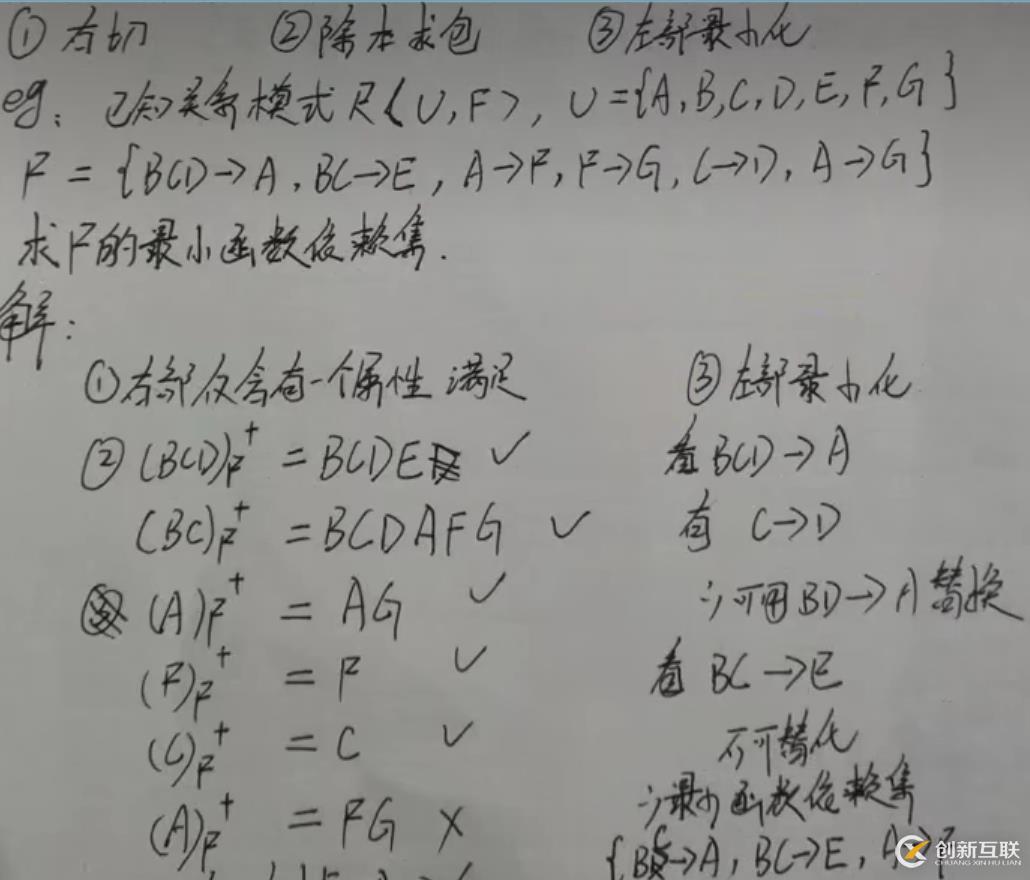 ① 右切 ② 除本求包 ③ 左部最小化
eg: 已知关系模式 R<U,F>, U={A,B,C,D,E,F,G}
F = {BCD→A, BC→E, A→F, F→G, C→D, A→G}
求F的最小函数依赖集.
解:
① 右部仅含有一个属性 满足
② (BCD)F+ = BCDE ✓
(BC)F+ = BCDAFG ✓
(A)F+ = AG ✓
(F)F+ = F ✓
(C)F+ = C ✓
(A)F+ = FG ×
③ 左部最小化
看 BCD→A
有 C→D
∴可用 BD→A 替换
看 BC→E
不可替化
∴最小函数依赖集
{BC→A, BC→E, A→F
创新互联
CHUANG XIN HU LIAN